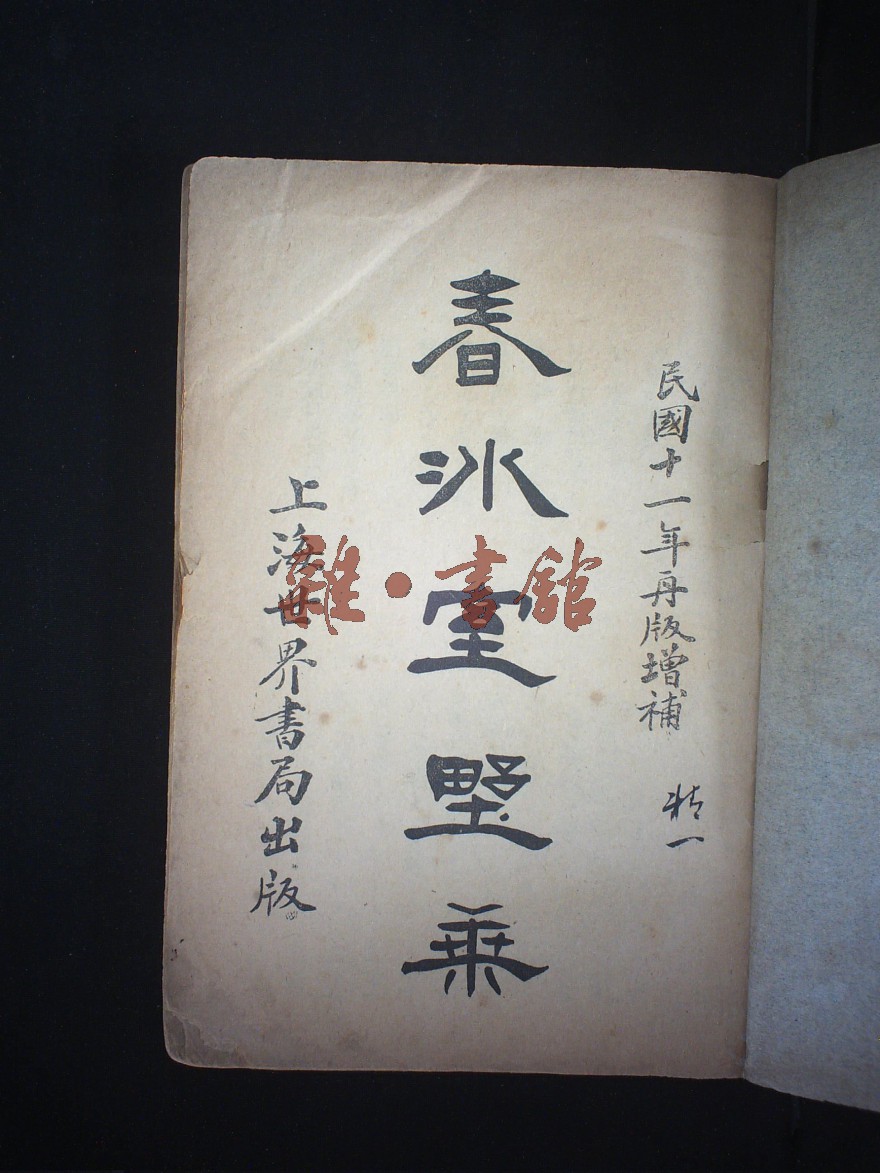 民國十一年再版增補
精一
春冰室野乘
上海世界書局出版
雜·書館